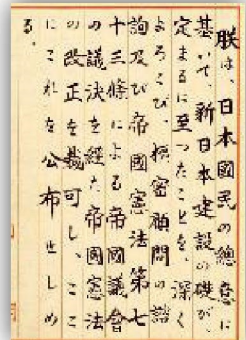 朕は、日本國民の總意に
基いて、新日本建設の礎が、
定まるに至つたことを、深く
よろこび、樞密顧問の諮
詢及び帝國憲法第七
十三條による帝國議會
の議決を経た帝國憲法
の改正を裁可し、ここ
にこれを公布せしめ
る。